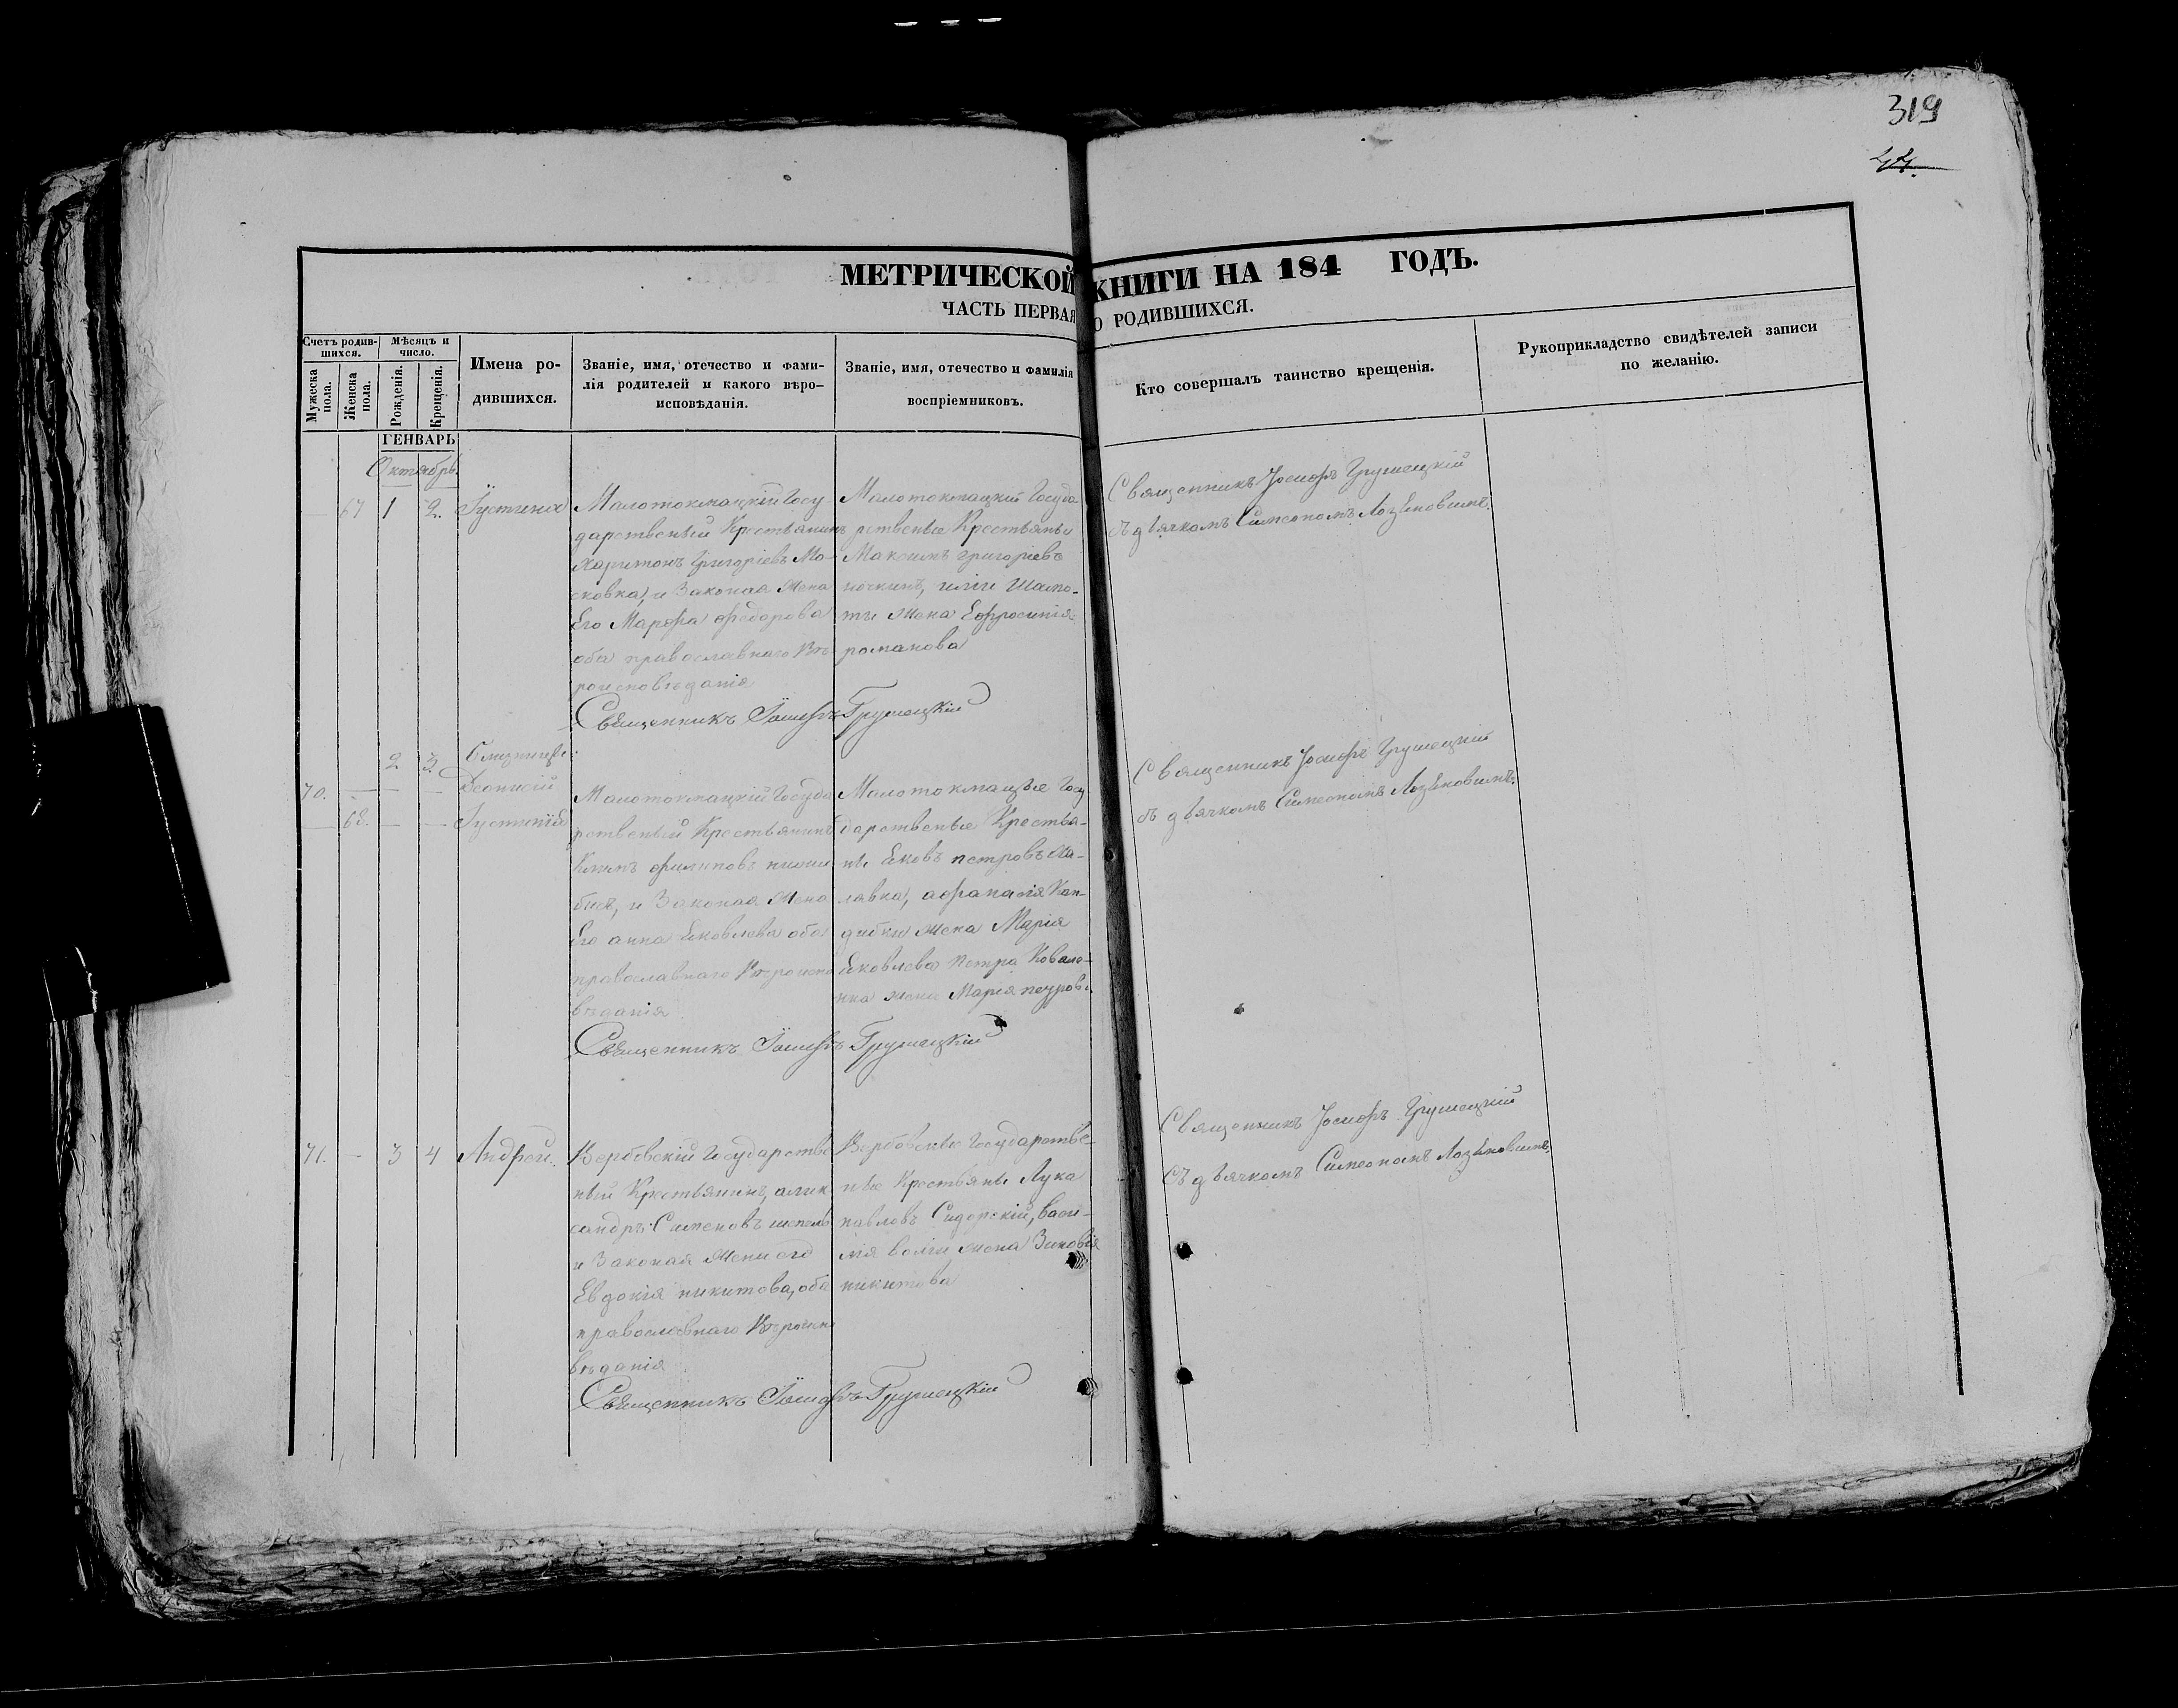 319
44.
МЕТРИЧЕСКОЙ КНИГИ НА 184 ГОДЪ.
ЧАСТЬ ПЕРВАЯ О РОДИВШИХСЯ.
Счетъ родив-
шихся.
Мужеска
пола.
Женска
пола.
Мѣсяцъ и
число.
Рожденія.
Крещенія.
Имена ро-
дившихся.
Званіе, имя, отечество и фами-
лія родителей и какого вѣро-
исповѣданія.
Званіе, имя, отечество и фамилія
воспріемниковъ.
Кто совершалъ таинство крещенія.
Рукоприкладство свидѣтелей записи
по желанію.
ГЕНВАРЬ
Октябрь
67 1 2.
Малотокмацкій Госу
дарственый Крестьянинъ
Харитонъ Григоріевъ Мо-
сковка, и Законая Жена
Его Марфа Федорова
оба православнаго Вѣ
роисповѣданія
Малотокмацкій Госуда
рственые Крестьяны
Максимъ Григоріевъ
или Шапо-
жена Ефросинія
романова
Священникъ Іосифъ Грушецкій
съ дьячкомъ Симеономъ
Священникъ Іосифъ Грушецкій
2 3.
70. Деонисій
68.
Малотокмацкій Госуда
рственый Крестьянинъ
Климъ Филиповъ
и Законая Жена
Его анна Яковлева оба
православнаго Вѣроиспо
вѣданія
Малотокмацкіе Госу
дарственые Крестья-
ны Яковъ петровъ
афанасія Кан-
дибки жена Марія
Яковлева Петра Ковале-
нка жена Марія петров.
Священникъ Іосифъ Грушецкій
съ дьячкомъ Симеономъ
Священникъ Іосифъ Грушецкій
71. - 3 4 Андрей.
Вербовскій Государстве
ный Крестьянинъ, алик
сандръ Сименовъ
и Законая Жена его
Евдокія никитова, оба
православнаго Вѣроиспо
вѣданія
Вербовскіе Государстве-
ные Крестьяны Лука
павловъ Сидорскій, Васи-
лія жена Зиновія
никитова
Священникъ Іосифъ Грушецкій
съ дьячкомъ Симеономъ
Священникъ Іосифъ Грушецкій